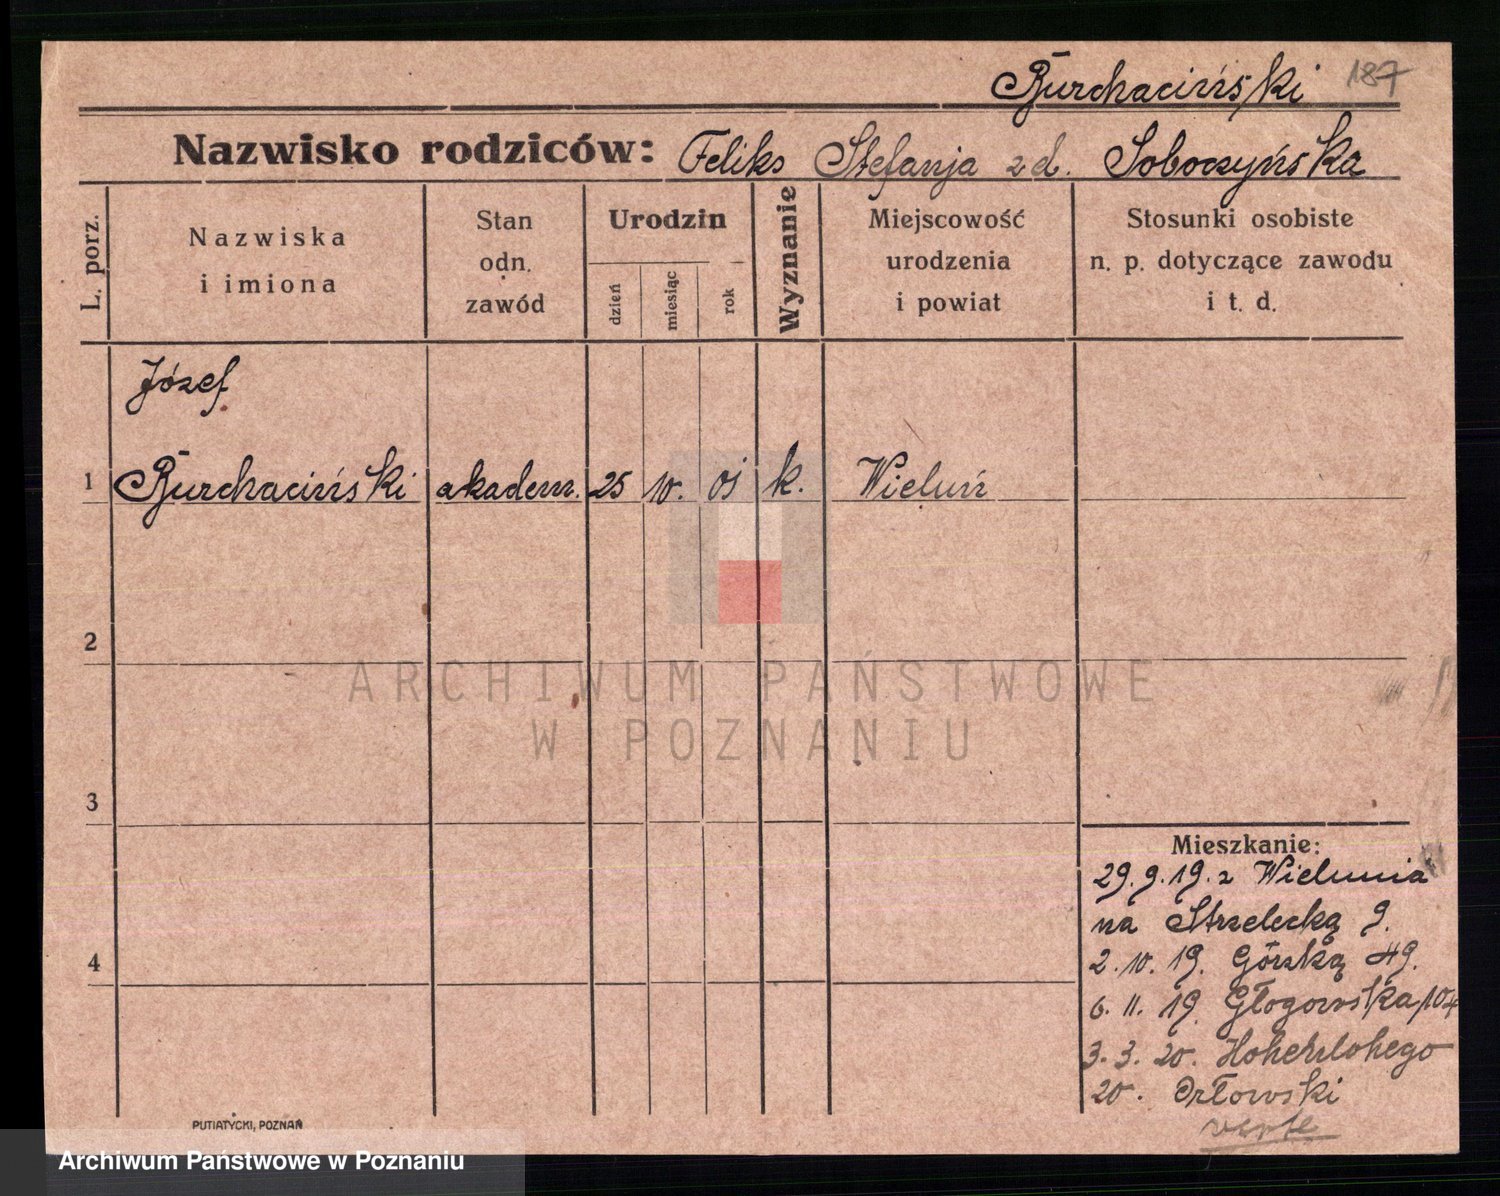 Burchaciński 187
Nazwisko rodziców: Feliks Stefanja zd. Soboczyńska
L. porz.
Nazwiska
i imiona
Stan
odn.
zawód
Urodzin
dzień
miesiąc
rok
Wyznanie
Miejscowość
urodzenia
i powiat
Stosunki osobiste
n. p. dotyczące zawodu
i t. d.
Józef
1 Burchaciński akadem. 25 10. 01 k. Wieluń
2
ARCHIWUM PAŃSTWOWE
W POZNANIU
3
4
Mieszkanie:
29.9.19. z Wielunia
na Strzelecką 9.
2.10.19. Górską 49.
6.11.19 Głogowska 104
3.3.20. Hohenlohego
20. Orłowski
verte
PUTIATYCKI, POZNAŃ
Archiwum Państwowe w Poznaniu